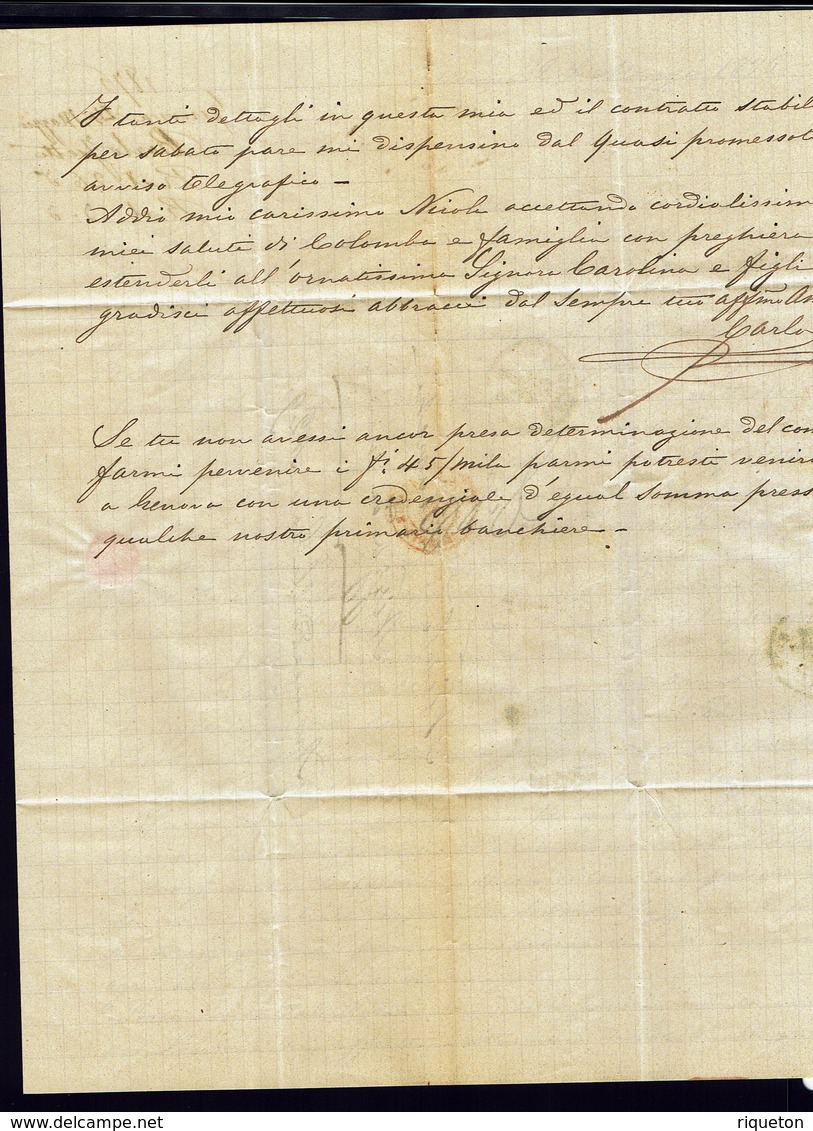 I tanti dettagli in questa mia ed il contratto stabil
per sabato pare mi dispensino dal quasi promessoti
avviso telegrafico —
Addio mio carissimo Nicola accettando cordialissim
miei saluti di Colomba e famiglia con preghiera
estenderli all'ornatissima Signora Carolina e figli
gradisci affettuosi abbracci dal sempre tuo affmo Am
Carlo
Se tu non avessi ancor presa determinazione del com
farmi pervenire i fi 45/mila parmi potresti venire
a Genova con una credenziale d'egual somma press
qualche nostro primario banchiere —
1873
Maggio
delcampe.net
riqueton